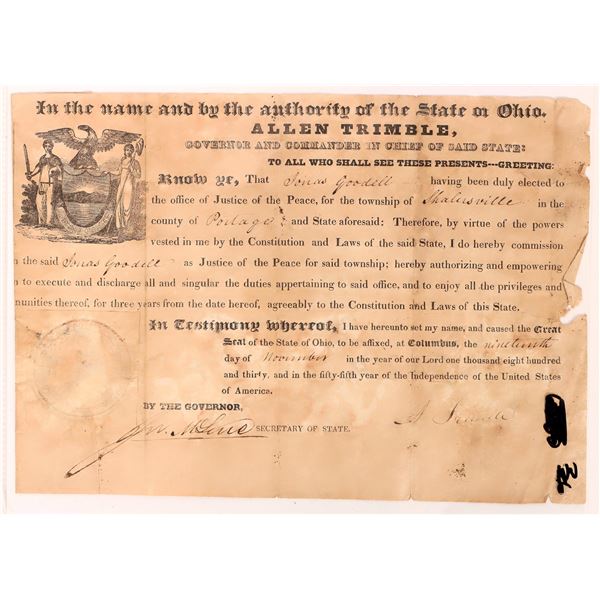 In the name and by the authority of the State of Ohio.
ALLEN TRIMBLE,
GOVERNOR AND COMMANDER IN CHIEF OF SAID STATE:
TO ALL WHO SHALL SEE THESE PRESENTS---GREETING:
Know ye, That Jonas Goodell having been duly elected to
the office of Justice of the Peace, for the township of Shalersville in the
county of Portage and State aforesaid: Therefore, by virtue of the powers
vested in me by the Constitution and Laws of the said State, I do hereby commission
the said Jonas Goodell as Justice of the Peace for said township; hereby authorizing and empowering
to execute and discharge all and singular the duties appertaining to said office, and to enjoy all the privileges and
munities thereof, for three years from the date hereof, agreeably to the Constitution and Laws of this State.
In Testimony whereof, I have hereunto set my name, and caused the Great
Seal of the State of Ohio, to be affixed, at Columbus, the nineteenth
day of November in the year of our Lord one thousand eight hundred
and thirty, and in the fifty-fifth year of the Independence of the United States
of America.
BY THE GOVERNOR,
A Trimble
SECRETARY OF STATE.